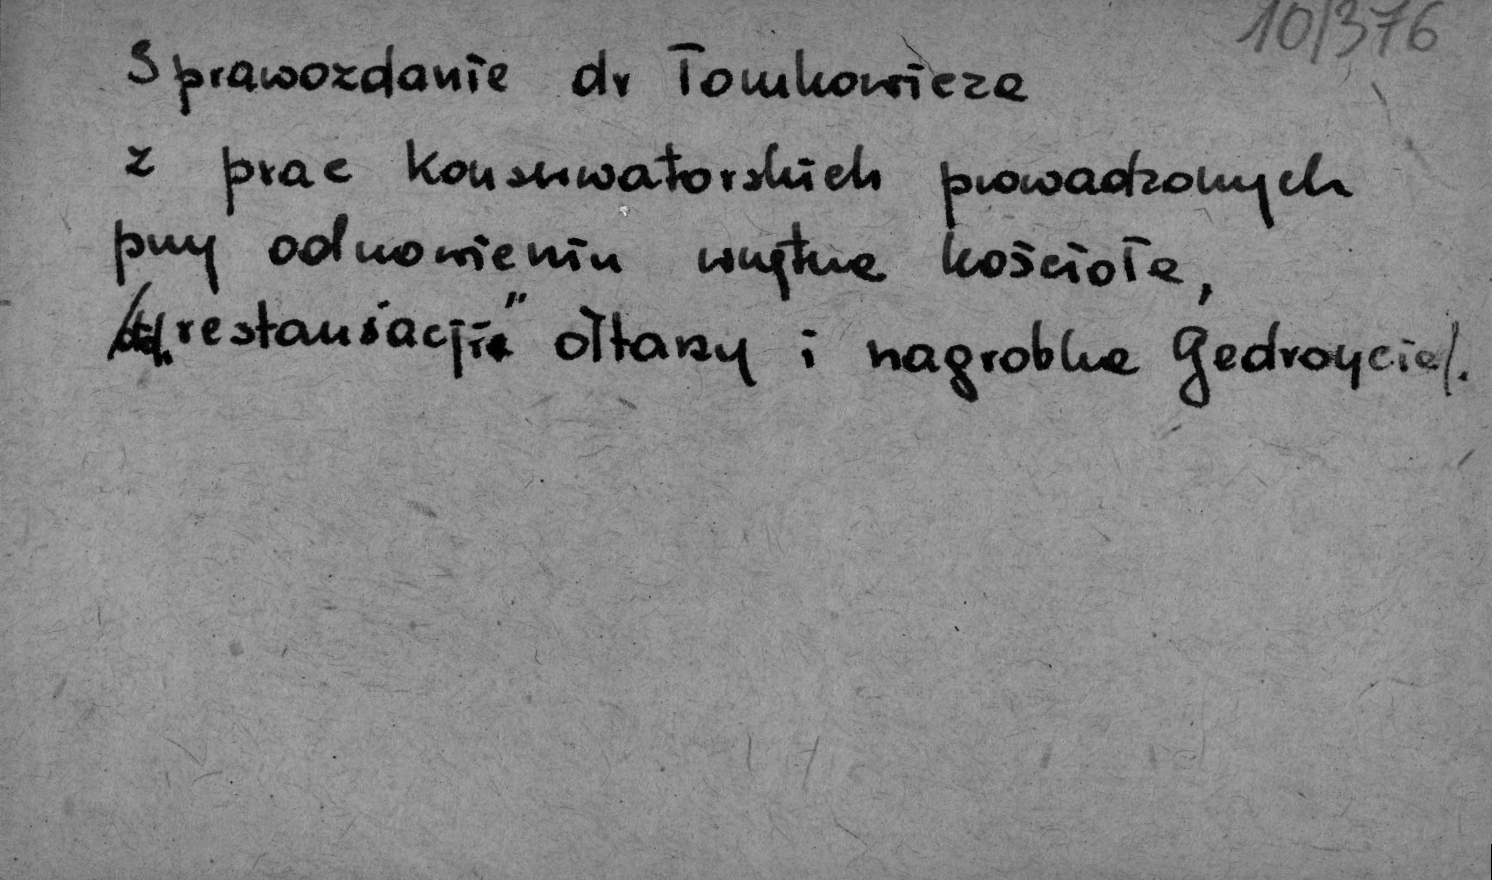 10/376
Sprawozdanie dr Tomkowicza
z prac konserwatorskich prowadzonych
przy odnowieniu wnętrza kościoła,
restauracji" ołtarzy i nagrobka Giedroycia/.